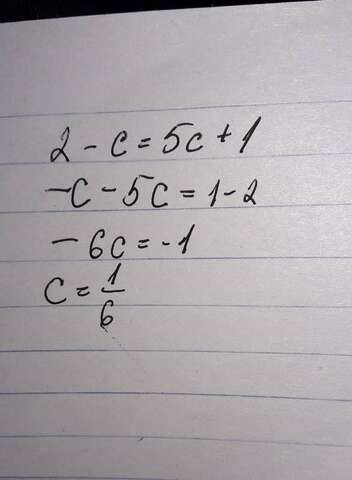 2 - c = 5c + 1
-c - 5c = 1 - 2
- 6c = -1
c = 1/6